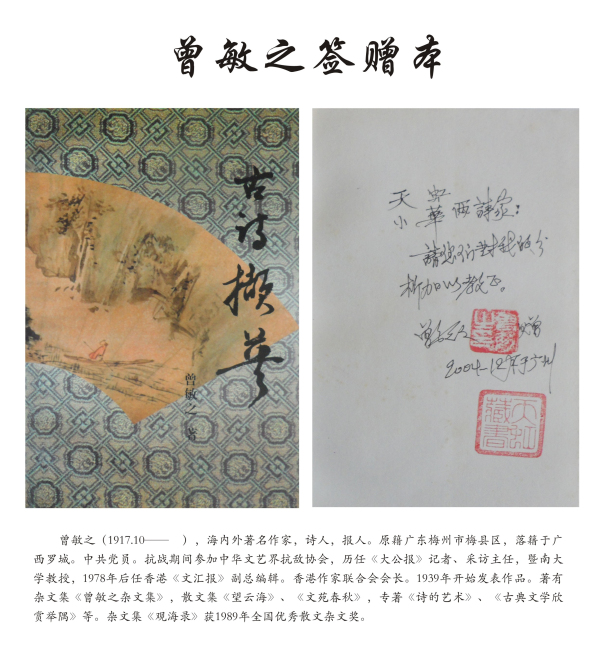 曾敏之签赠本
古诗撷英
曾敏之 著
天虹
小華 两詩家：
請您们對我的分
析加以教正。
曾敏之 贈
2004-12于广州
天虹藏書
曾敏之（1917.10——　），海内外著名作家，诗人，报人。原籍广东梅州市梅县区，落籍于广
西罗城。中共党员。抗战期间参加中华文艺界抗敌协会，历任《大公报》记者、采访主任，暨南大
学教授，1978年后任香港《文汇报》副总编辑。香港作家联合会会长。1939年开始发表作品。著有
杂文集《曾敏之杂文集》，散文集《望云海》、《文苑春秋》，专著《诗的艺术》、《古典文学欣
赏举隅》等。杂文集《观海录》获1989年全国优秀散文杂文奖。